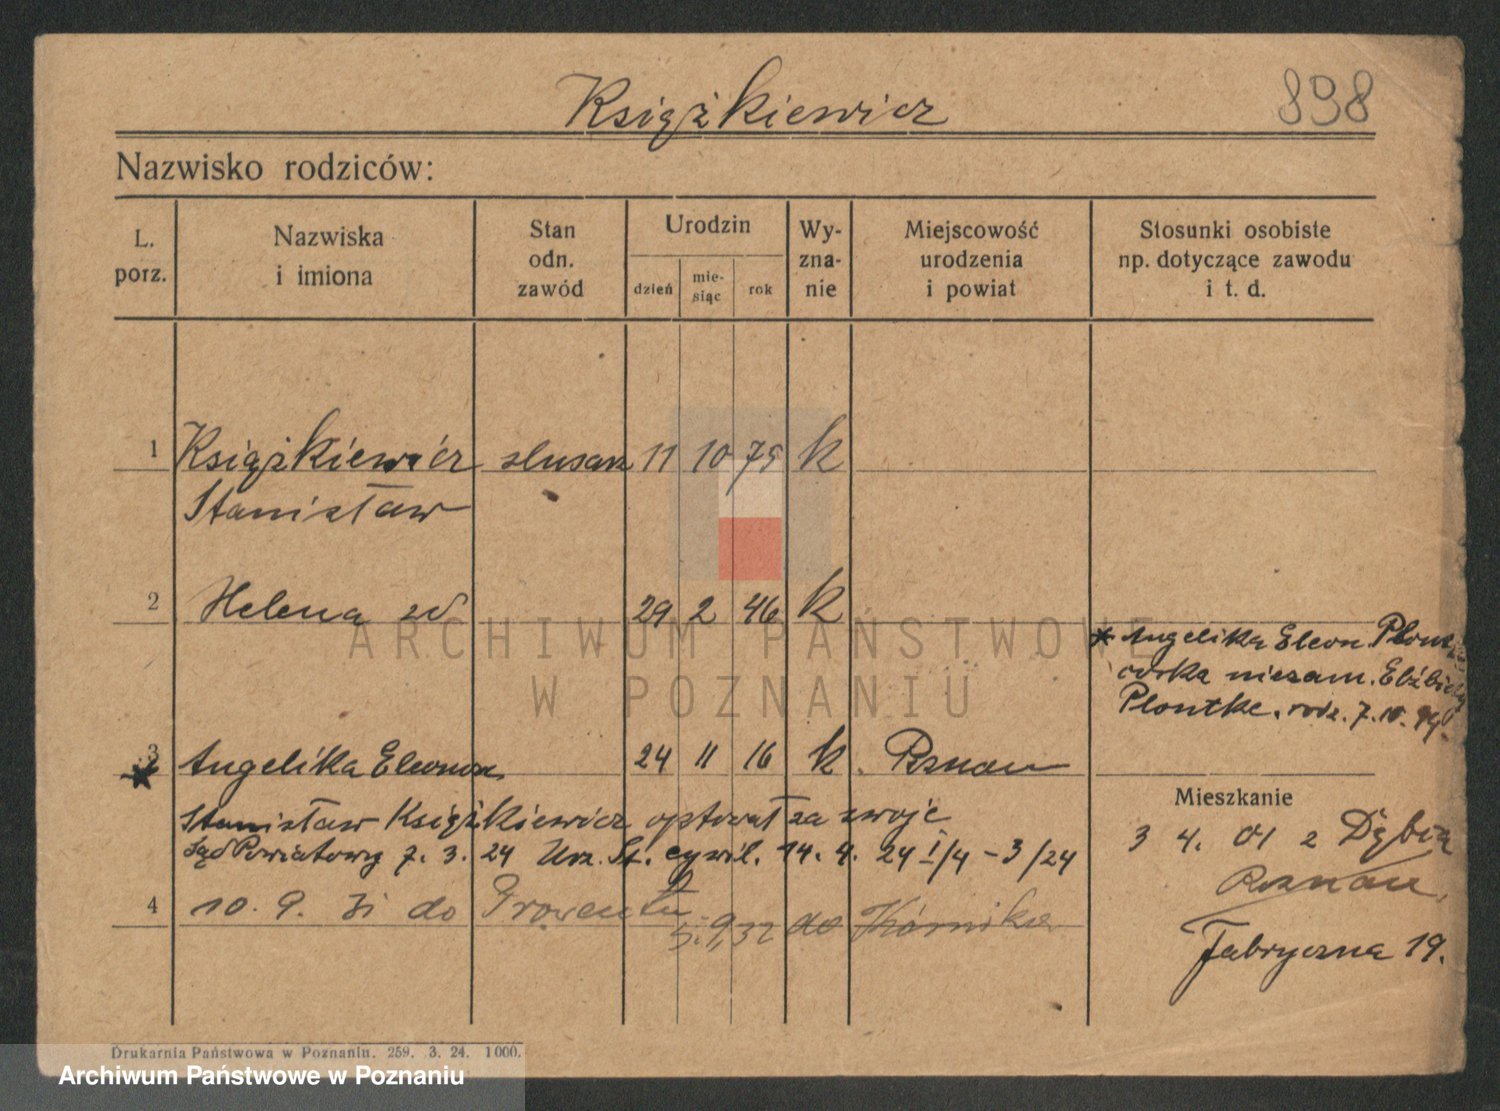 Książkiewicz
898
Nazwisko rodziców:
L. porz.
Nazwiska i imiona
Stan odn. zawód
Urodzin
dzień
mie-
siąc
rok
Wy-
zna-
nie
Miejscowość urodzenia i powiat
Stosunki osobiste np. dotyczące zawodu i t. d.
1 Książkiewicz slusarz 11 10 75 k
Stanisław
2 Helena zd 29 2 46 k
ARCHIWUM PAŃSTWOWE
W POZNANIU
* Angelika Eleon.
córka niezam. Elżbiety
Plontke. rodz. 7. 10.
3 * Angelika Eleonora 24 11 16 k. Poznań
Mieszkanie
Stanisław Książkiewicz optował za swoje
3 4. 01 z Dębca
Sąd Powiatowy 7. 3. 24 Urz. St. cywil. 14. 4. 24 I/4 - 3/24
Poznań,
4 10. 9. 31 do
5. 9, 32 do Kórnika
Fabryczna 19.
Drukarnia Państwowa w Poznaniu. 259. 3. 24. 1000.
Archiwum Państwowe w Poznaniu